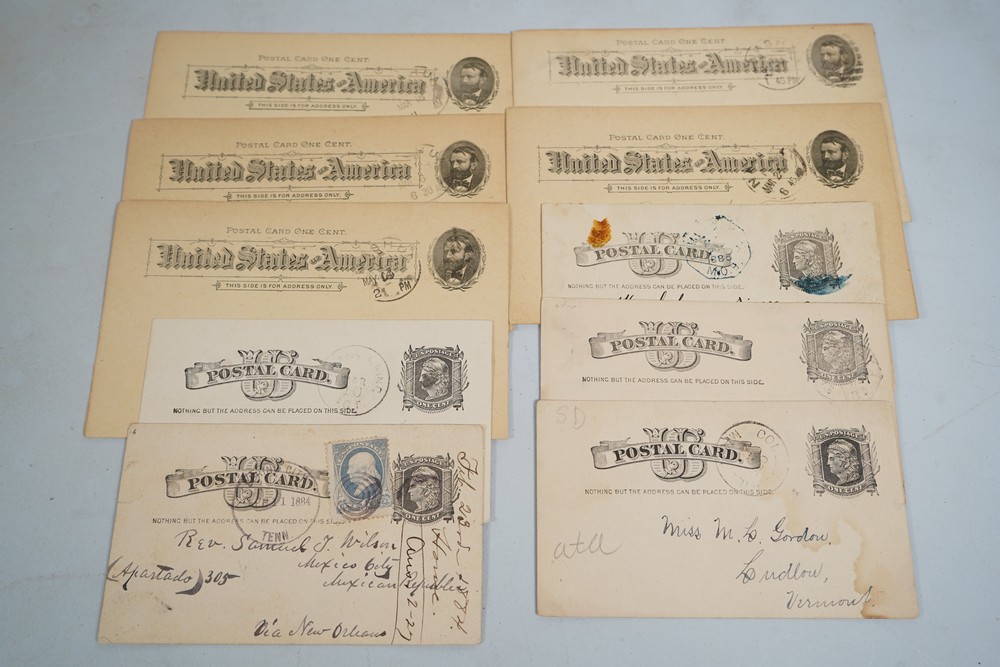 POSTAL CARD ONE CENT.
United States of America
THIS SIDE IS FOR ADDRESS ONLY.
POSTAL CARD ONE CENT.
United States of America
45 PM
POSTAL CARD ONE CENT.
United States of America
THIS SIDE IS FOR ADDRESS ONLY.
6
POSTAL CARD ONE CENT.
United States of America
THIS SIDE IS FOR ADDRESS ONLY.
MAR 2
6
POSTAL CARD ONE CENT.
United States of America
THIS SIDE IS FOR ADDRESS ONLY.
MAY 03
2 PM
US
POSTAL CARD.
NOTHING BUT THE ADDRESS CAN BE PLACED ON THIS SIDE.
U.S. POSTAGE
885
MO.
US
POSTAL CARD.
NOTHING BUT THE ADDRESS CAN BE PLACED ON THIS SIDE.
U.S. POSTAGE
ONE CENT
US
POSTAL CARD.
NOTHING BUT THE ADDRESS CAN BE PLACED ON THIS SIDE.
U.S. POSTAGE
ONE CENT
US
POSTAL CARD.
NOTHING BUT THE ADDRESS CAN BE PLACED ON THIS SIDE.
U.S. POSTAGE
ONE CENT
1 1884
TENN
Rev. Samuel J. Wilson
Mexico City
(Apartado) 305
Mexican Republic
Via New Orleans
SD
US
POSTAL CARD.
NOTHING BUT THE ADDRESS CAN BE PLACED ON THIS SIDE.
U.S. POSTAGE
ONE CENT
Miss M. L. Gordon.
Ludlow,
Vermont.